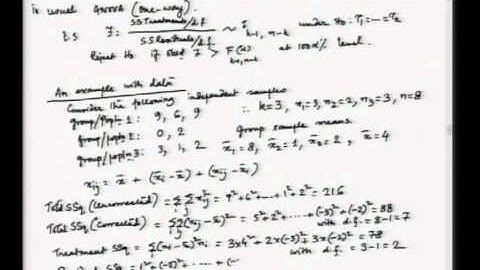 is usual ANOVA (one-way).
F = SS Treatments/d.f. / SS Residuals/d.f. ~ F k-1, n-k under H₀: τ₁=...=τk
Reject H₀ if F > F k-1, n-k (α) at 100α% level.
An example with data
Consider the following independent samples
group/popln 1: 9, 6, 9 ∴ k=3, n₁=3, n₂=2, n₃=3, n=8
group/popln 2: 0, 2 Group sample means
group/popln 3: 3, 1, 2 x̄₁=8, x̄₂=1, x̄₃=2, x̄=4
xij = x̄ + (x̄i - x̄) + (xij - x̄i)
Total SSq (Uncorrected) = ΣΣ xij² = 9²+6²+....+1²+2² = 216
Total SSq (Corrected) = ΣΣ(xij-x̄)² = 5²+2²+....+(-3)²+(-2)² = 88
with d.f. = 8-1=7
Treatment SSq = Σ(x̄i-x̄)²ni = 3x4²+2x(-3)²+3x(-2)² = 78
with d.f. = 3-1=2
= 1²+(-2)²+.....+(-